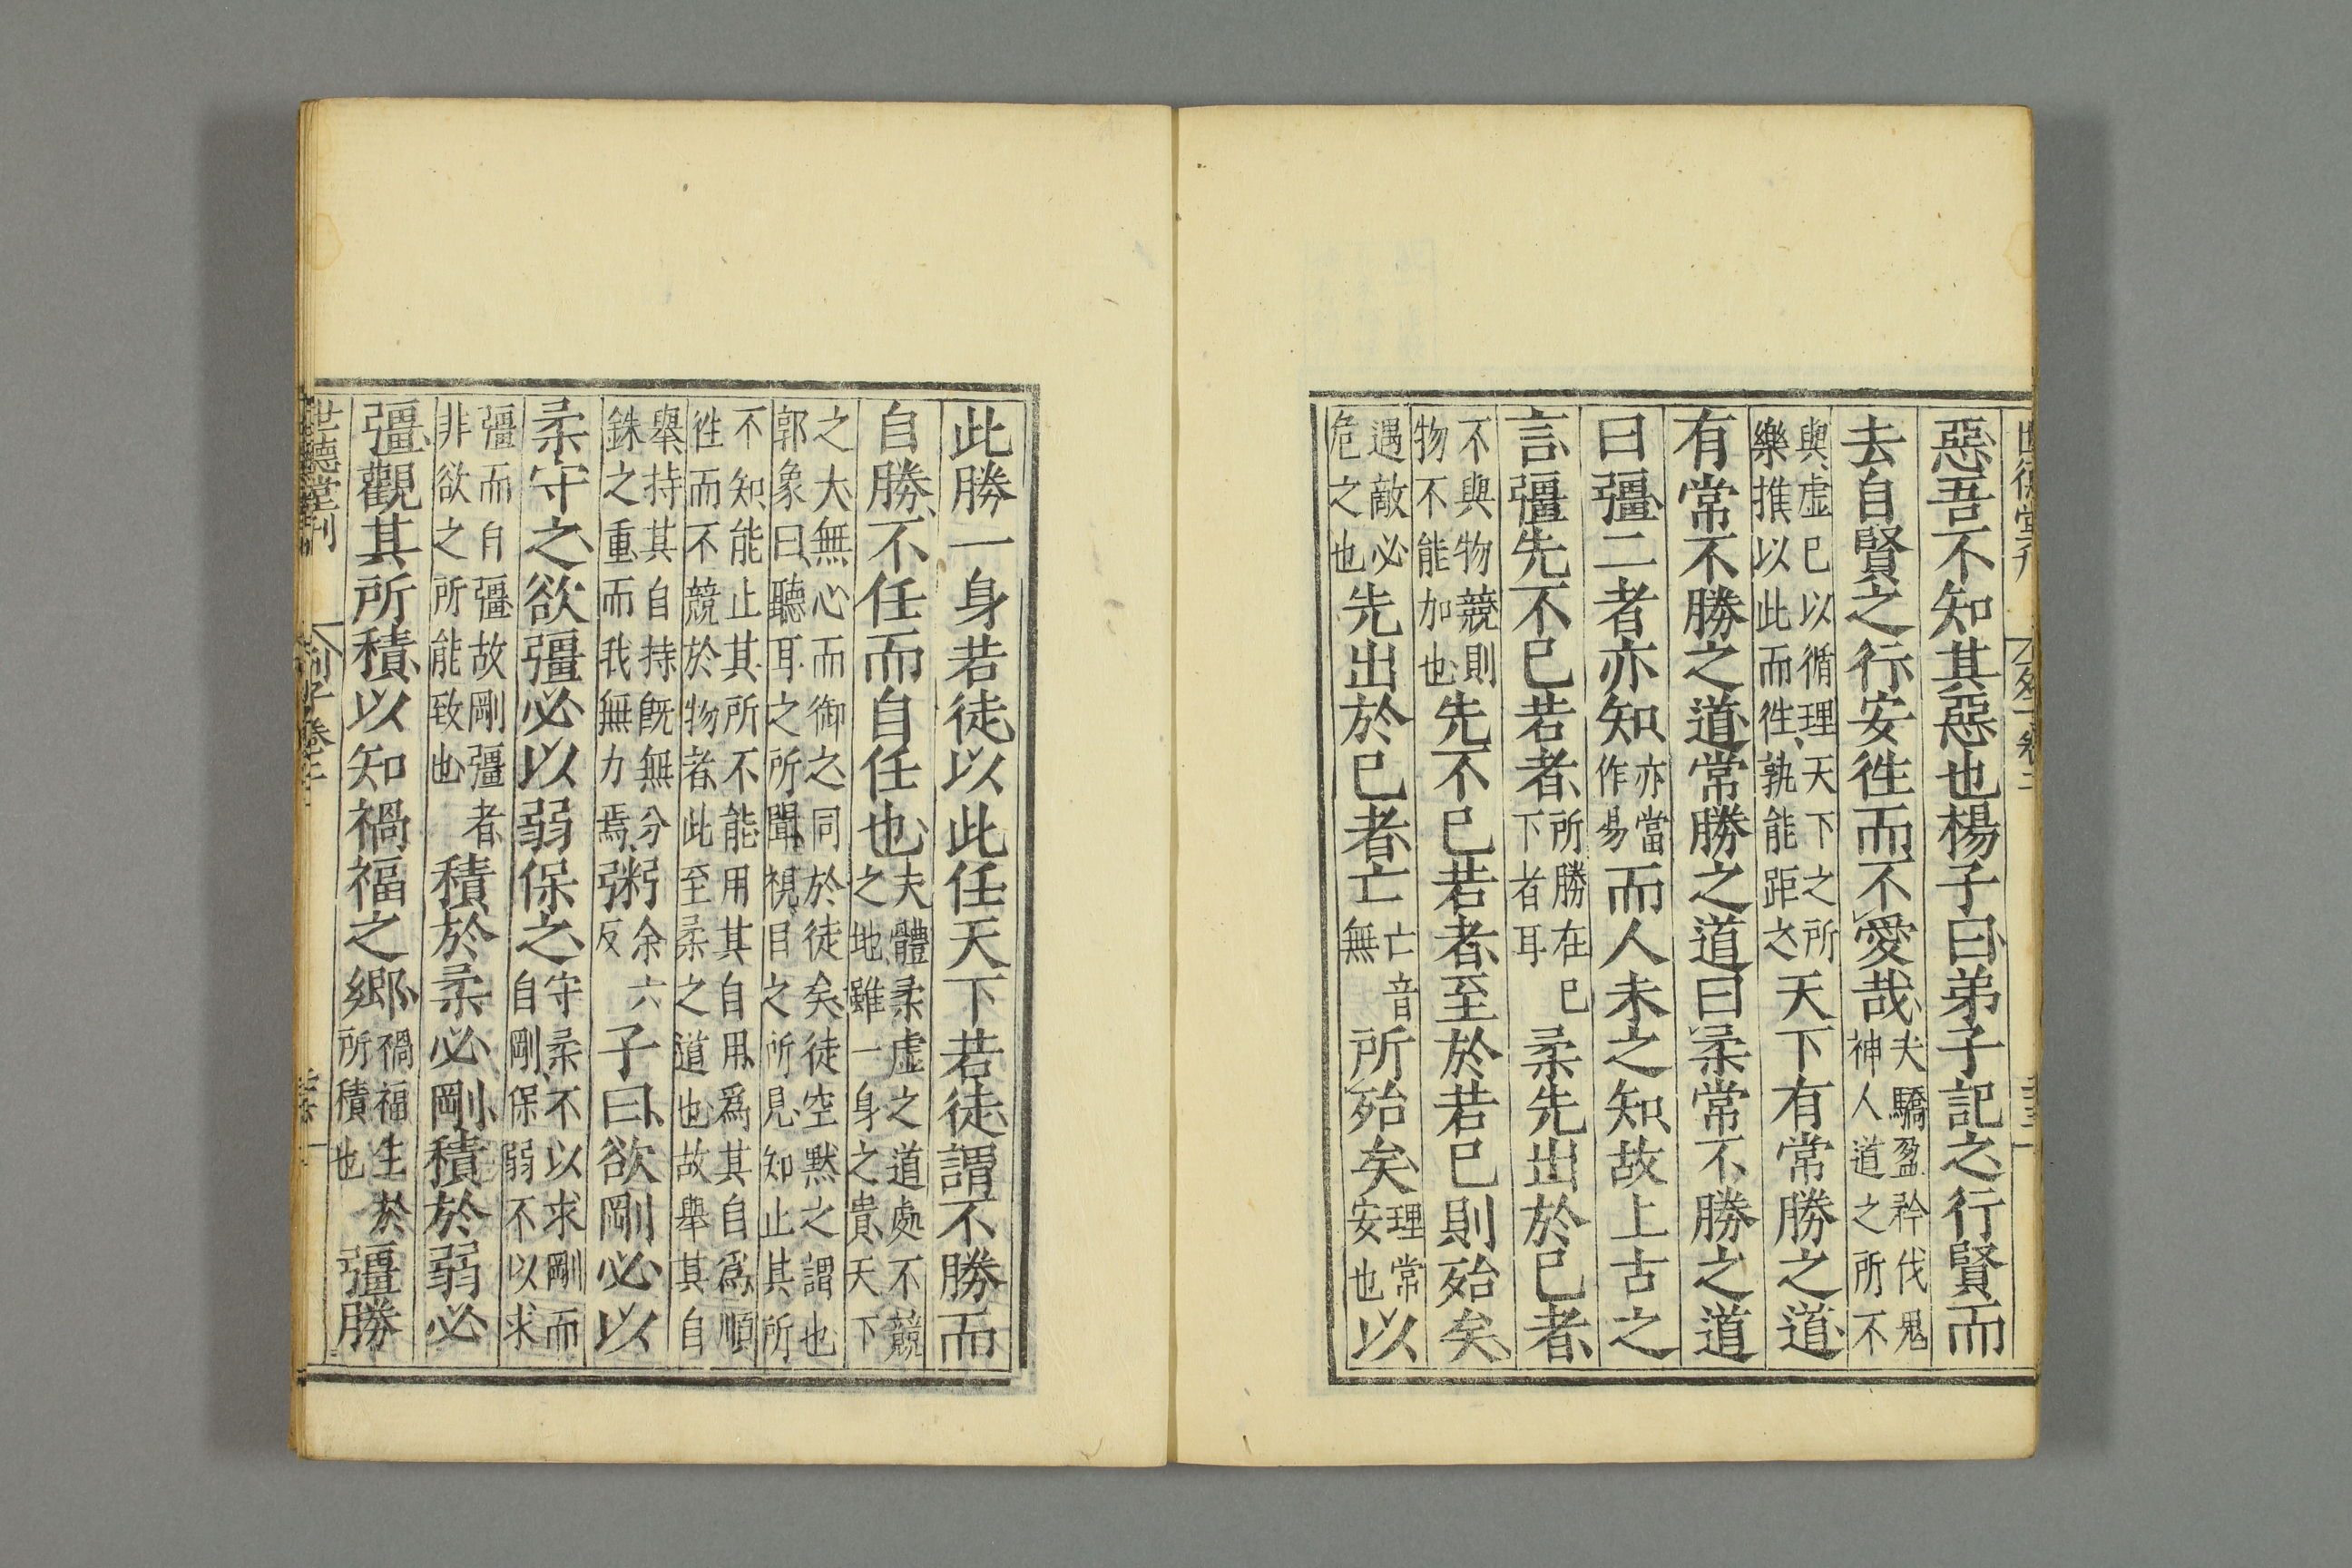 惡吾不知其惡也楊子曰弟子記之行賢而
去自賢之行安徃而不愛哉夫驕盈矜伐鬼神人道之所不
與虚已以循理天下之所樂推以此而徃孰能距之天下有常勝之道
有常不勝之道常勝之道曰柔常不勝之道
曰彊二者亦知亦當作易而人未之知故上古之
言彊先不已若者所勝在已下者耳柔先出於已者
不與物競則物不能加也先不已若者至於若已則殆矣
遇敵必危之也先出於已者亡亡音無所殆矣理常安也以
此勝一身若徒以此任天下若徒謂不勝而
自勝不任而自任也夫體柔虚之道處不競之地雖一身之貴天下
之大無心而御之同於徒矣徒空默之謂也郭象曰聽耳之所聞視目之所見知止其所
不知能止其所不能用其自用爲其自爲順徃而不競於物者此至柔之道也故舉其自
舉持其自持旣無分銖之重而我無力焉粥余六反子曰欲剛必以
柔守之欲彊必以弱保之守柔不以求剛而自剛保弱不以求
彊而自彊故剛彊者非欲之所能致也積於柔必剛積於弱必
彊觀其所積以知禍福之鄉禍福生於所積也彊勝
世德堂刊 列子卷二